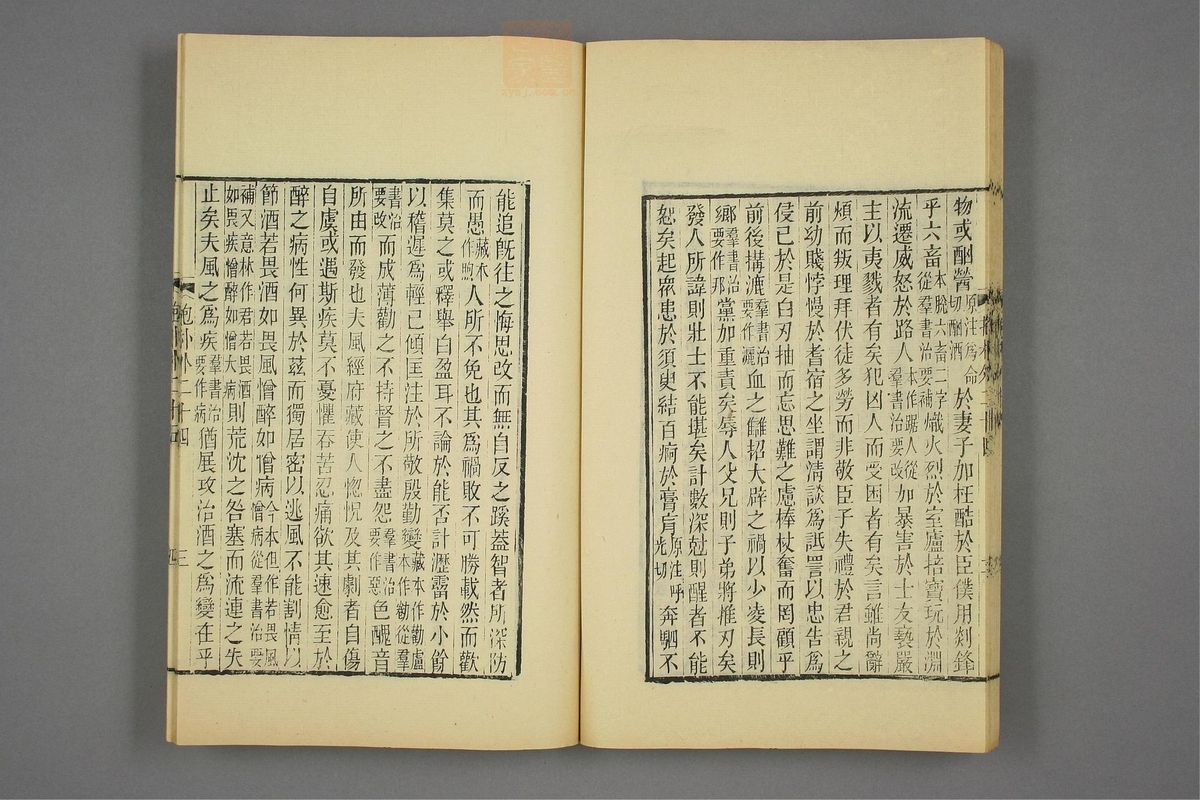 物或酗醟原注爲命切酗酒於妻子加枉酷於臣僕用剡鋒
乎六畜本脫六畜二字從羣書治要補熾火烈於室廬掊寶玩於淵
流遷威怒於路人本作踞人從羣書治要改加暴害於士友褻嚴
主以夷戮者有矣犯凶人而受困者有矣言雖尚辭
煩而叛理拜伏徒多勞而非敬臣子失禮於君親之
前幼賤悖慢於耆宿之坐謂淸談爲詆詈以忠告爲
侵己於是白刃抽而忘思難之慮棒杖奮而罔顧乎
前後搆漉羣書治要作灑血之讎招大辟之禍以少凌長則
鄉羣書治要作邦黨加重責矣辱人父兄則子弟將推刃矣
發人所諱則壯士不能堪矣計數深尅則醒者不能
恕矣起衆患於須臾結百痾於膏肓原注呼光切奔駟不
能追旣往之悔思改而無自反之蹊蓋智者所深防
而愚藏本作煦人所不免也其爲禍敗不可勝載然而歡
集莫之或釋舉白盈耳不論於能否計瀝霤於小餘
以稽遲爲輕己傾匡注於所敬殷勤變藏本作勸盧本作勒從羣
書治要改而成薄勸之不持督之不盡怨羣書治要作惡色醜音
所由而發也夫風經府藏使人惚怳及其劇者自傷
自虞或遇斯疾莫不憂懼吞苦忍痛欲其速愈至於
醉之病性何異於茲而獨居密以逃風不能割情以
節酒若畏酒如畏風憎醉如憎病今本但作若畏風憎病從羣書治要
補又意林作君若畏酒如畏疾憎醉如憎大病則荒沈之咎塞而流連之失
止矣夫風之爲疾羣書治要作病猶展攻治酒之爲變在乎
抱朴外二十四
三